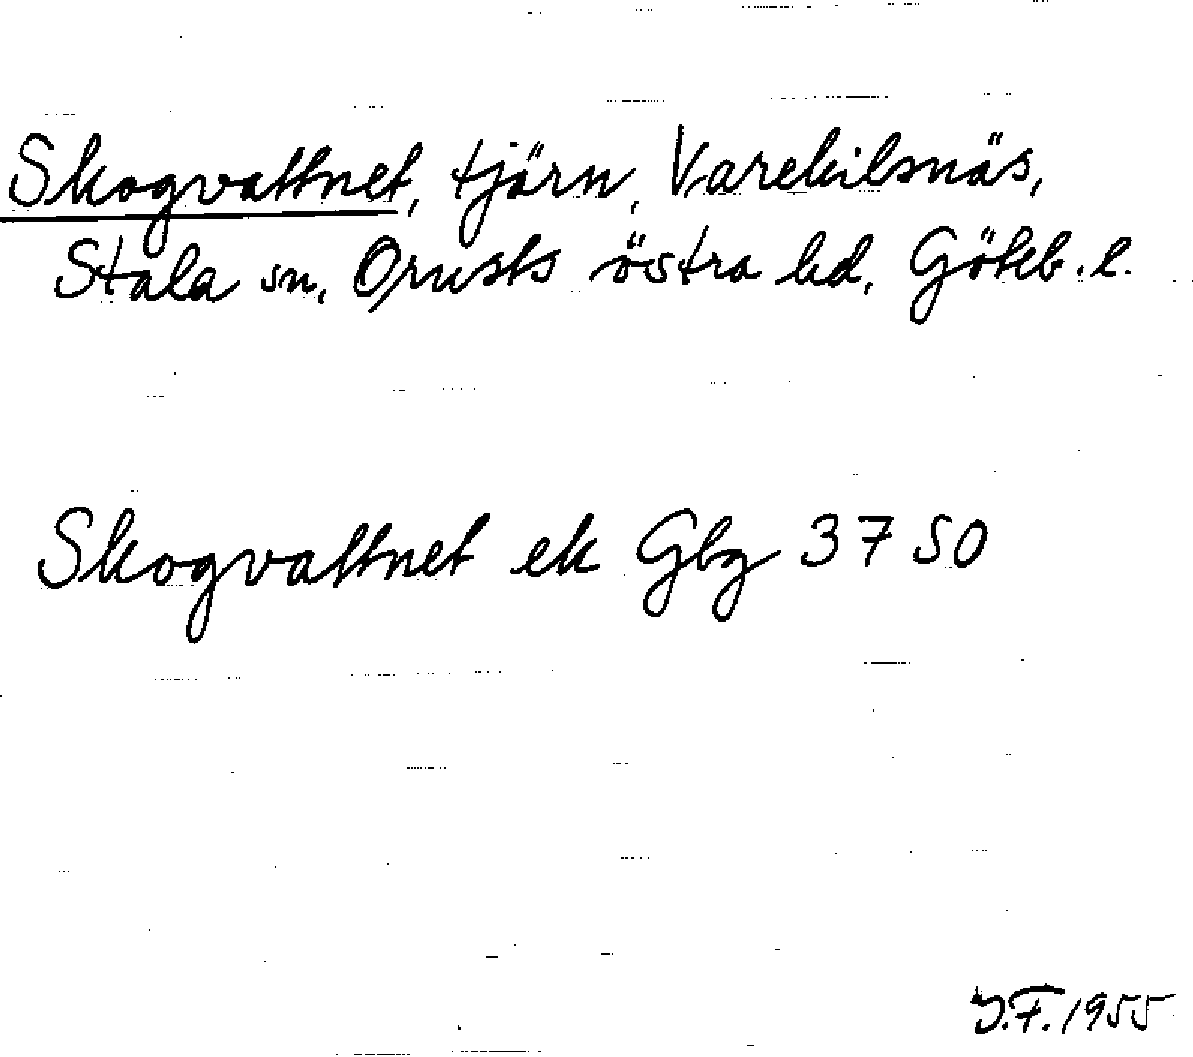 Skogvattnet, tjärn, Varekilsnäs,
Stala sn, Orusts östra hd, Göteb. l.
Skogvattnet ek Gbg 3750
J.F. 1955